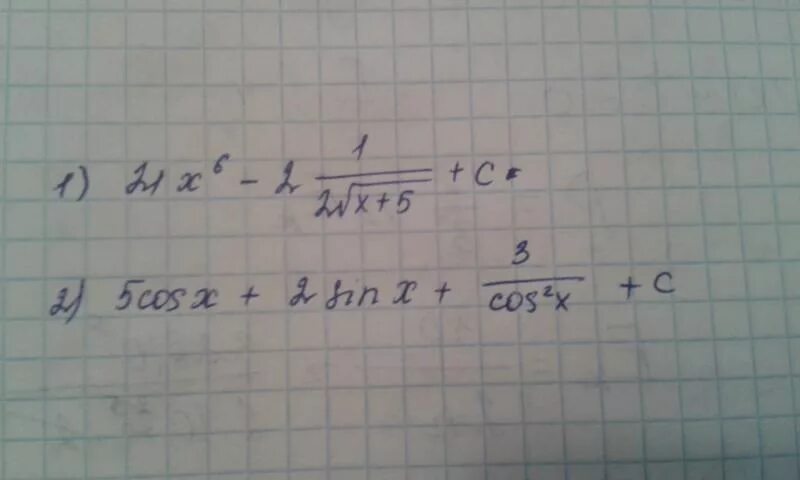 1) 21x⁶ - 2 1/(2√(x+5)) + C.
2) 5cosx + 2sinx + 3/(cos²x) + C